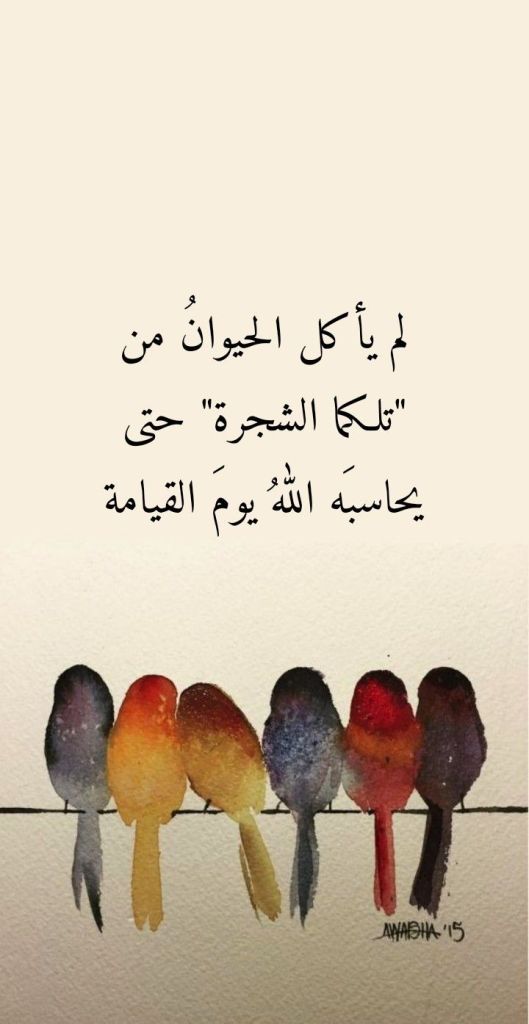 لم يأكل الحيوانُ من
"تلكما الشجرة" حتى
يحاسبَه اللهُ يومَ القيامة